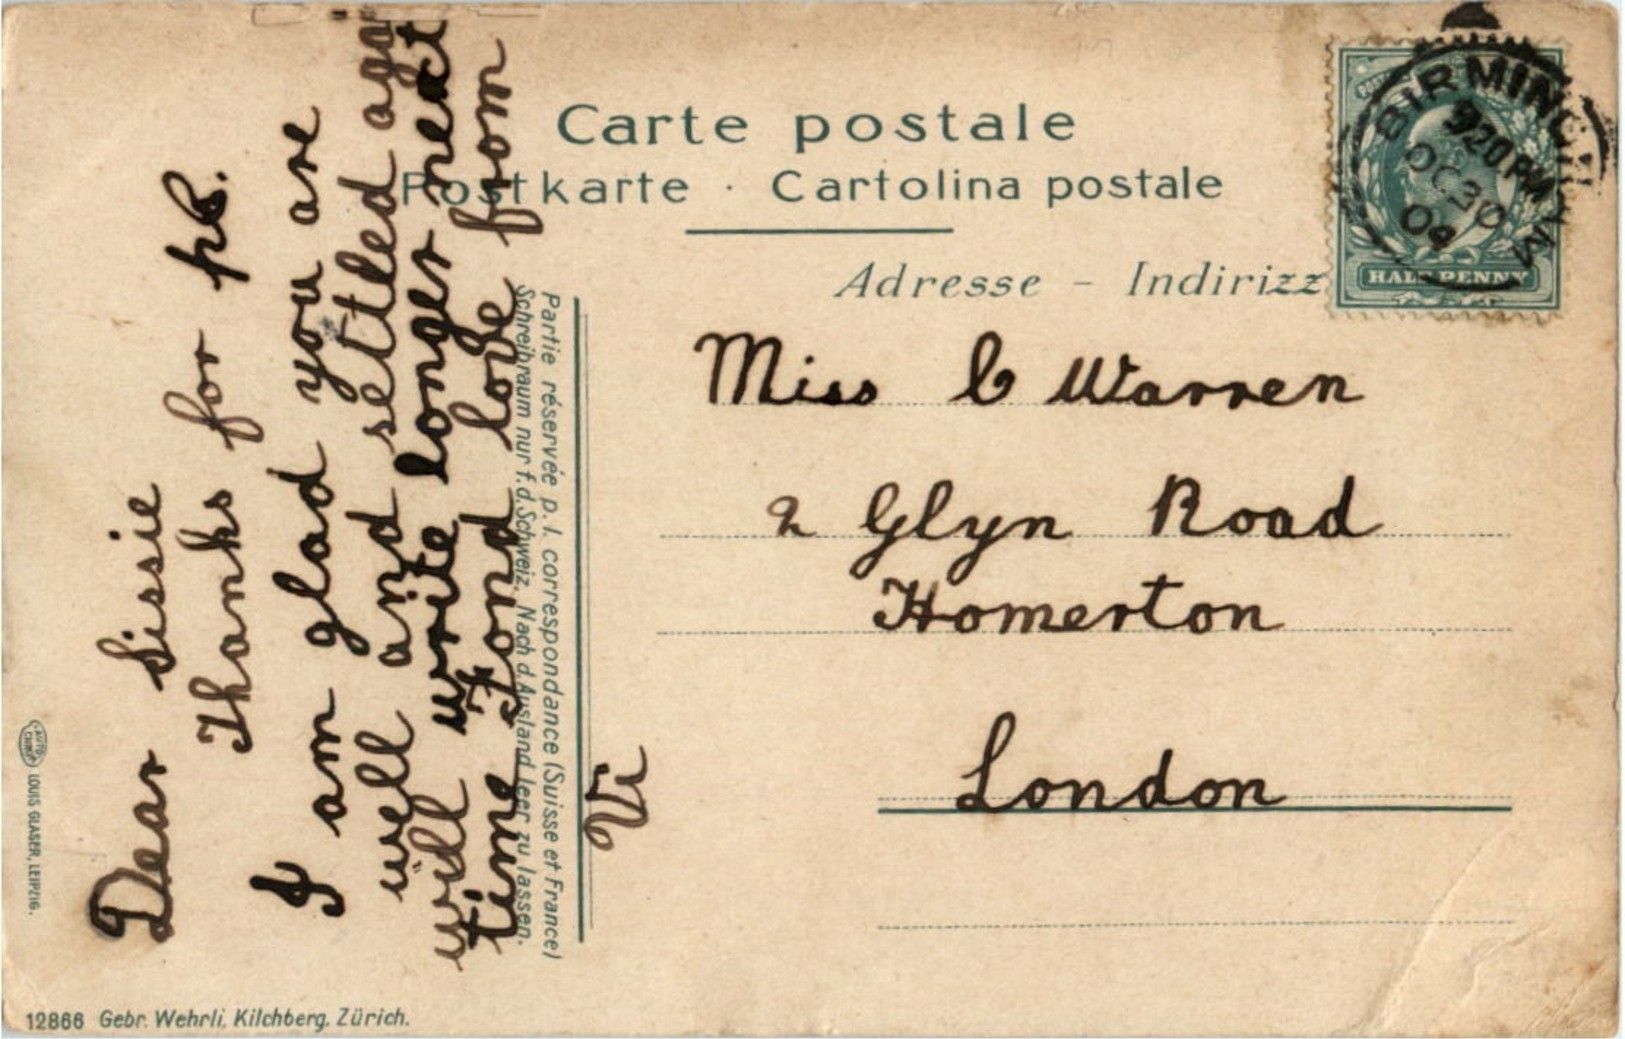 Carte postale
Postkarte · Cartolina postale
Adresse - Indirizz
BIRMINGHAM
9 20 PM
OC 30
04
HALF PENNY
Dear Sissie
Thanks for pc.
I am glad you are
well and settled agai
will write longer next
time Fond love from
Vi
Partie réservée p. l. correspondance (Suisse et France)
Schreibraum nur f. d. Schweiz. Nach d. Ausland leer zu lassen.
Miss C Warren
2 Glyn Road
Homerton
London
AUTO CHROM LOUIS GLASER, LEIPZIG.
12866 Gebr. Wehrli, Kilchberg, Zürich.